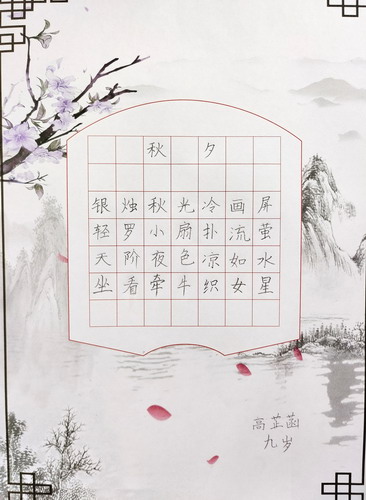 秋夕
银烛秋光冷画屏
轻罗小扇扑流萤
天阶夜色凉如水
坐看牵牛织女星
高芷菡
九岁